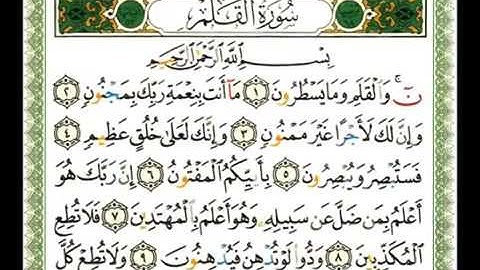 سُورَةُ الْقَلَمِ
بِسْمِ اللَّهِ الرَّحْمَٰنِ الرَّحِيمِ
نٓ ۚ وَالْقَلَمِ وَمَا يَسْطُرُونَ ١ مَا أَنتَ بِنِعْمَةِ رَبِّكَ بِمَجْنُونٍ ٢
وَإِنَّ لَكَ لَأَجْرًا غَيْرَ مَمْنُونٍ ٣ وَإِنَّكَ لَعَلَىٰ خُلُقٍ عَظِيمٍ ٤
فَسَتُبْصِرُ وَيُبْصِرُونَ ٥ بِأَييِّكُمُ الْمَفْتُونُ ٦ إِنَّ رَبَّكَ هُوَ
أَعْلَمُ بِمَن ضَلَّ عَن سَبِيلِهِ وَهُوَ أَعْلَمُ بِالْمُهْتَدِينَ ٧ فَلَا تُطِعِ
الْمُكَذِّبِينَ ٨ وَدُّوا لَوْ تُدْهِنُ فَيُدْهِنُونَ ٩ وَلَا تُطِعْ كُلَّ